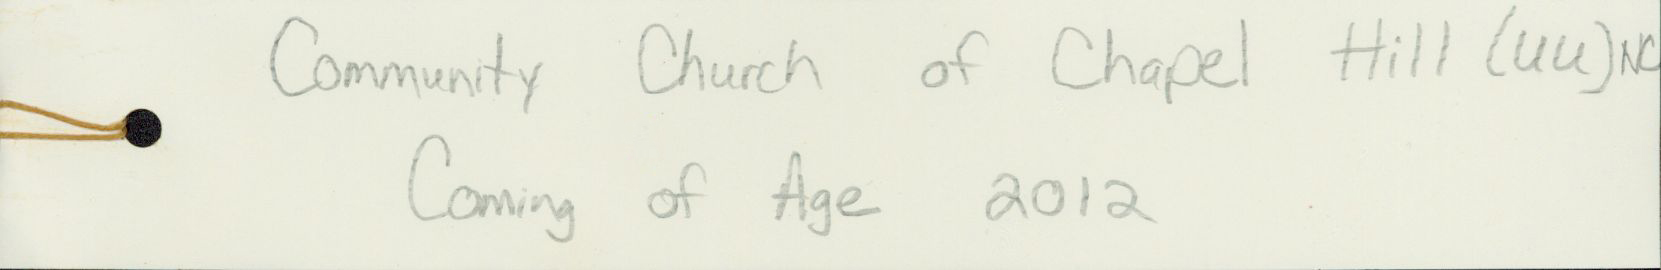 Community Church of Chapel Hill (UU) NC
Coming of Age 2012